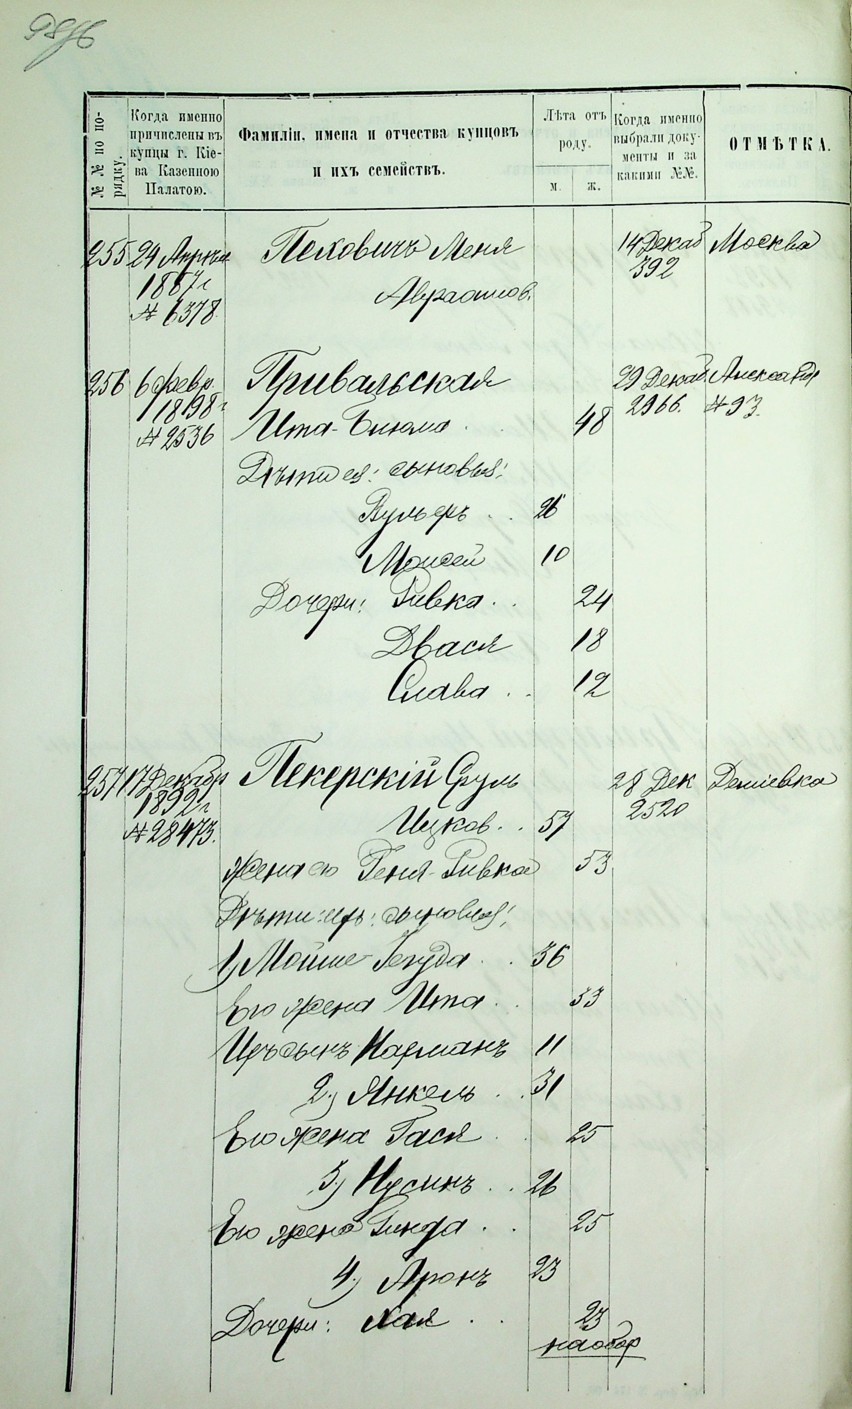 №№ по по-
рядку.
Когда именно
причислены въ
купцы г. Кіе-
ва Казенною
Палатою.
Фамиліи, имена и отчества купцовъ
и ихъ семействъ.
Лѣта отъ
роду.
м. ж.
Когда именно
выбрали доку-
менты и за
какими №№.
ОТМѢТКА.
255 24 Апрѣля Меня 14 Декаб Москва
392
№ 6378.
256 6 февр. Привальская 29 Декаб.
1898 г. 2966. № 93.
№ 2536 Ита-Блюма . . 48
Дѣти ея: сыновья:
Вульфъ . . 26
Моисей 10
Дочери: Ривка . . 24
Двася 18
Слава . . 12
257 17 Декабр Пекерскій Сруль 28 Дек Деміевка
1892 г. 2520
№ 28473. Ицков. . . 57
Жена его Геня-Ривка 53
Дѣти ихъ: сыновья:
1) Мойше-Іегуда . . 36
Его жена Ита . . 33
Ихъ сынъ Нахманъ 11
2) Янкель . . 31
Его жена Гася . . 25
3) Нусинъ . . 26
Его жена Гинда . . 25
4) Аронъ 23
Дочери: Хая . . 23
на обор